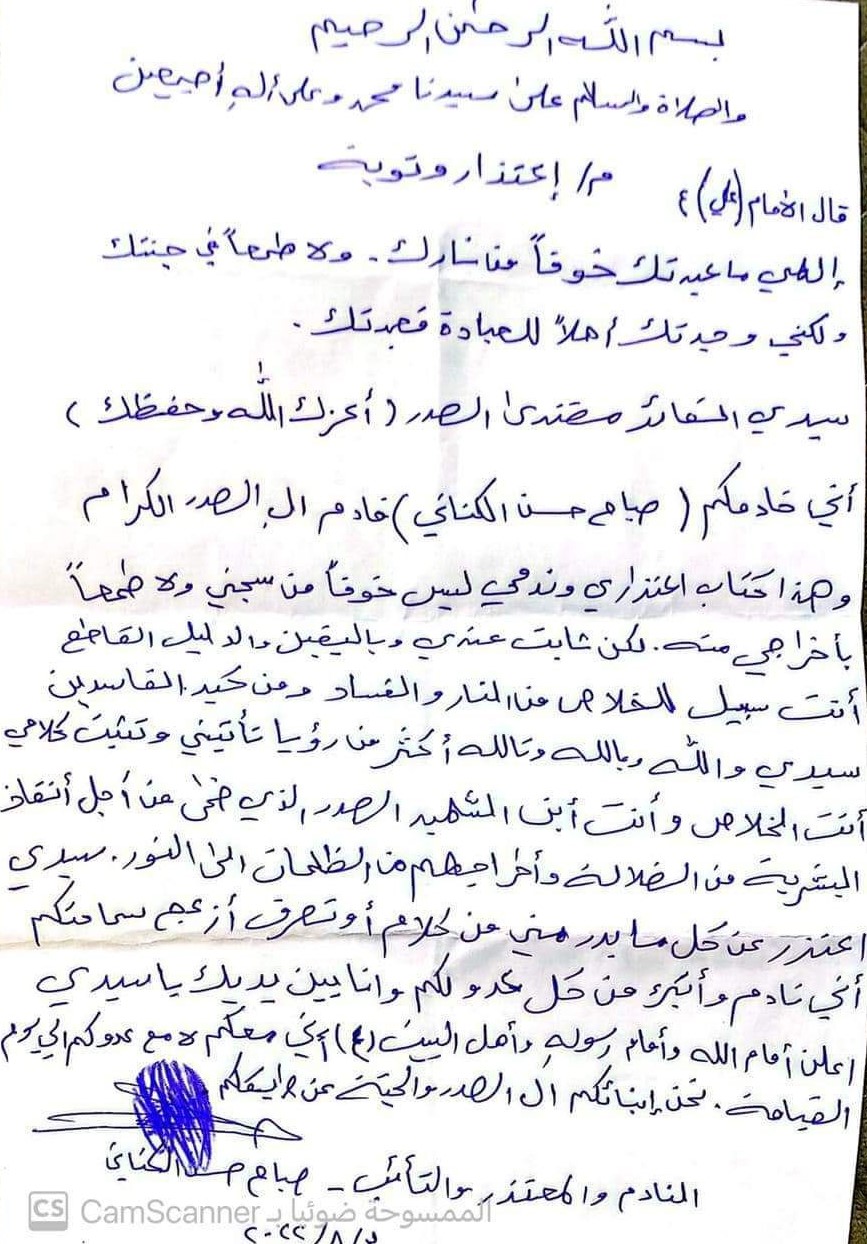 بسم الله الرحمن الرحيم
والصلاة والسلام على سيدنا محمد وعلى أله أجمعين
م/ إعتذار وتوبة
قال الأمام (علي) ع
إلهي ما عبدتك خوفاً من نارك. ولا طمعاً في جنتك
ولكني وجدتك أهلاً للعبادة فعبدتك.
سيدي القائد مقتدى الصدر (أعزك الله وحفظك)
أني خادمكم (صباح حسن الكناني) خادم ال الصدر الكرام
وهذا كتاب اعتذاري وندمي ليس خوفاً من سجني ولا طمعاً
بأخراجي منه. لكن ثابت عندي وباليقين والدليل القاطع
أنت سبيل للخلاص من النار والفساد ومن كيد الفاسدين
سيدي والله وبالله وتالله أكثر من رؤيا تأتيني وتثبت كلامي
أنت الخلاص وأنت أبن الشهيد الصدر الذي ضحى من أجل أنقاذ
البشرية من الضلالة وأخراجهم من الظلمات الى النور. سيدي
اعتذر عن كل ما بدر مني من كلام أو تصرف أزعج سماحتكم
أني نادم وأتبرء من كل عدو لكم وانا بين يديك يا سيدي
اعلن أمام الله وأمام رسوله وأهل البيت (ع) أني معكم لا مع عدوكم الى يوم
القيامة. نحن إبنائكم ال الصدر والجنة عن
النادم والمعتذر والتأئب - صباح حسن الكناني
٢٠٢٢/٨/٥
CS الممسوحة ضوئيا بـ CamScanner